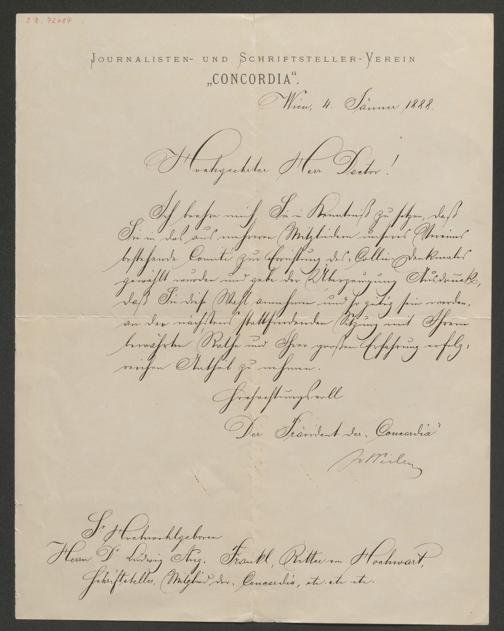 JOURNALISTEN- UND SCHRIFTSTELLER-VEREIN
„CONCORDIA“.
Wien, 4. Jänner 1888.
Hochgeehrter Herr Doctor!
Ich beehre mich, Sie in Kenntniß zu setzen, daß
Sie in das aus mehreren Mitgliedern unseres Vereines
bestehende Comité zur Errichtung des Collin Denkmales
gewählt wurden und gebe der Überzeugung Ausdruck,
daß Sie diese Wahl annehmen und so gütig sein werden,
an der nächstens stattfindenden Sitzung mit Ihrem
bewährten Rathe und Ihrer großen Erfahrung erfolg-
reichen Antheil zu nehmen.
Hochachtungsvoll
Der Präsident der „Concordia“
Weilen
Sr Hochwohlgeboren
Herrn Dr Ludwig Aug. Frankl, Ritter von Hochwart,
Schriftsteller, Mitglied der „Concordia, etc. etc. etc.